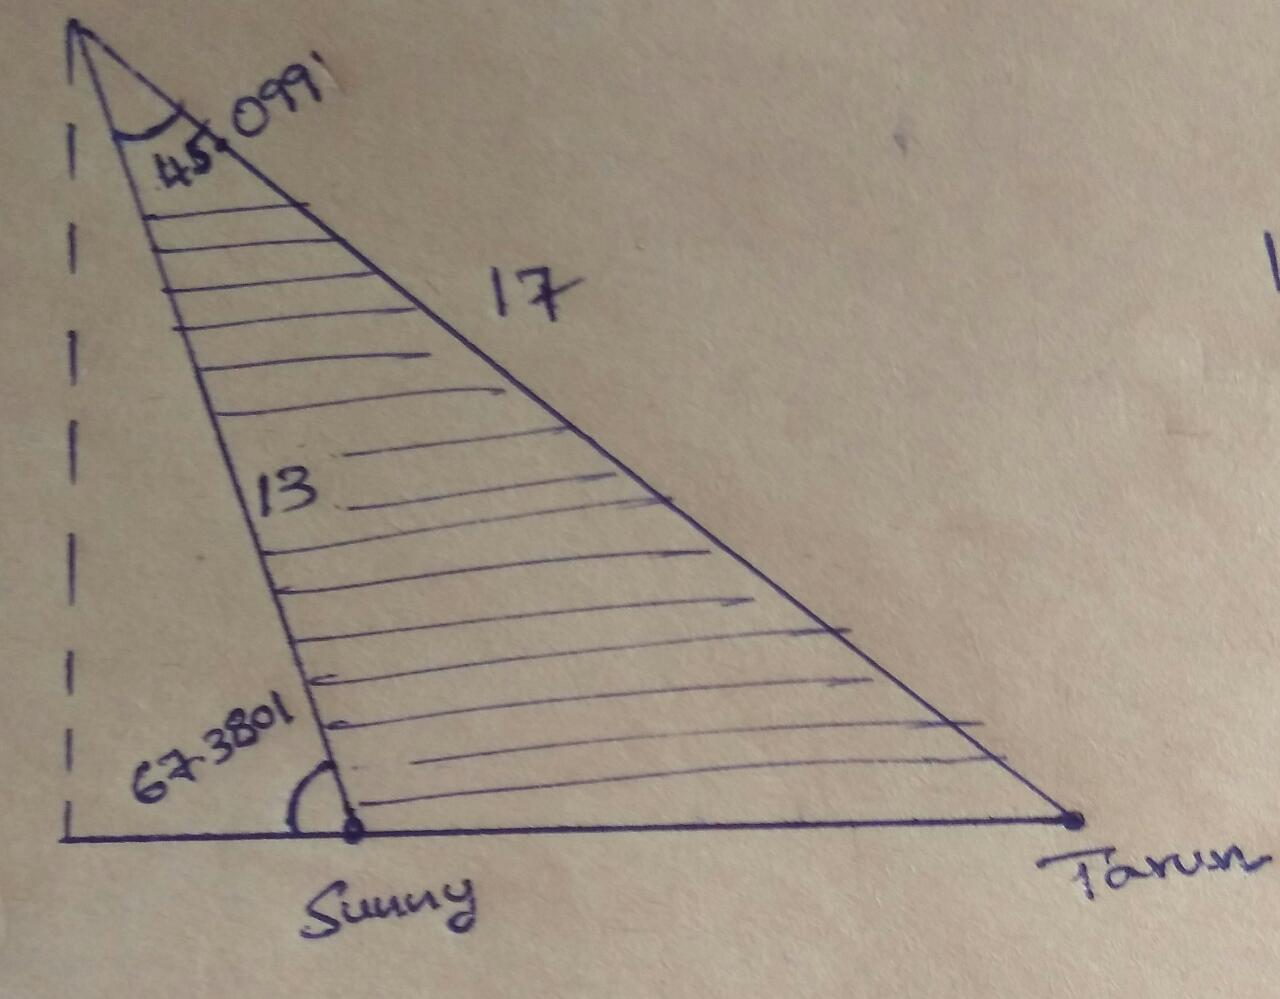 45.0991
17
13
67.3801
Sunny
Tarun